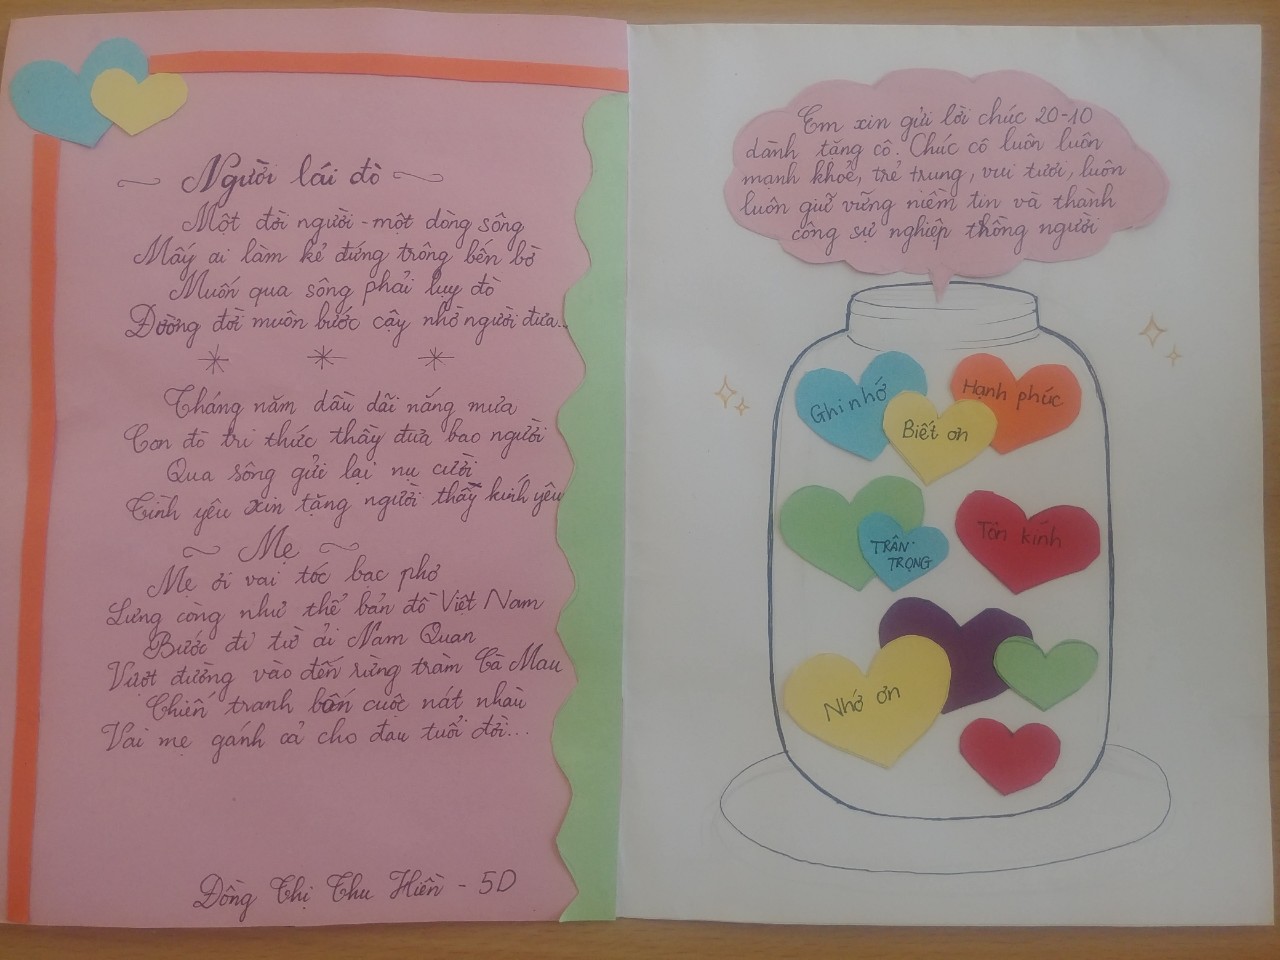 Người lái đò
Một đời người - một dòng sông
Mấy ai làm kẻ đứng trông bến bờ
Muốn qua sông phải lụy đò
Đường đời muôn bước cậy nhờ người đưa...
Tháng năm dầu dãi nắng mưa
Con đò tri thức thầy đưa bao người
Qua sông gửi lại nụ cười
Tình yêu xin tặng người thầy kính yêu
Mẹ
Mẹ ơi vai tóc bạc phơ
Lưng còng như thể bản đồ Việt Nam
Bước đi từ ải Nam Quan
Vượt đường vào đến rừng tràm Cà Mau
Chiến tranh bắn cuộc nát nhàu
Vai mẹ gánh cả cho đau tuổi đời...
Đồng Thị Thu Hiền - 5D
Em xin gửi lời chúc 20-10
dành tặng cô. Chúc cô luôn luôn
mạnh khoẻ, trẻ trung, vui tươi, luôn
luôn giữ vững niềm tin và thành
công sự nghiệp trồng người
Ghi nhớ
Hạnh phúc
Biết ơn
TRÂN
TRỌNG
Tôn kính
Nhớ ơn